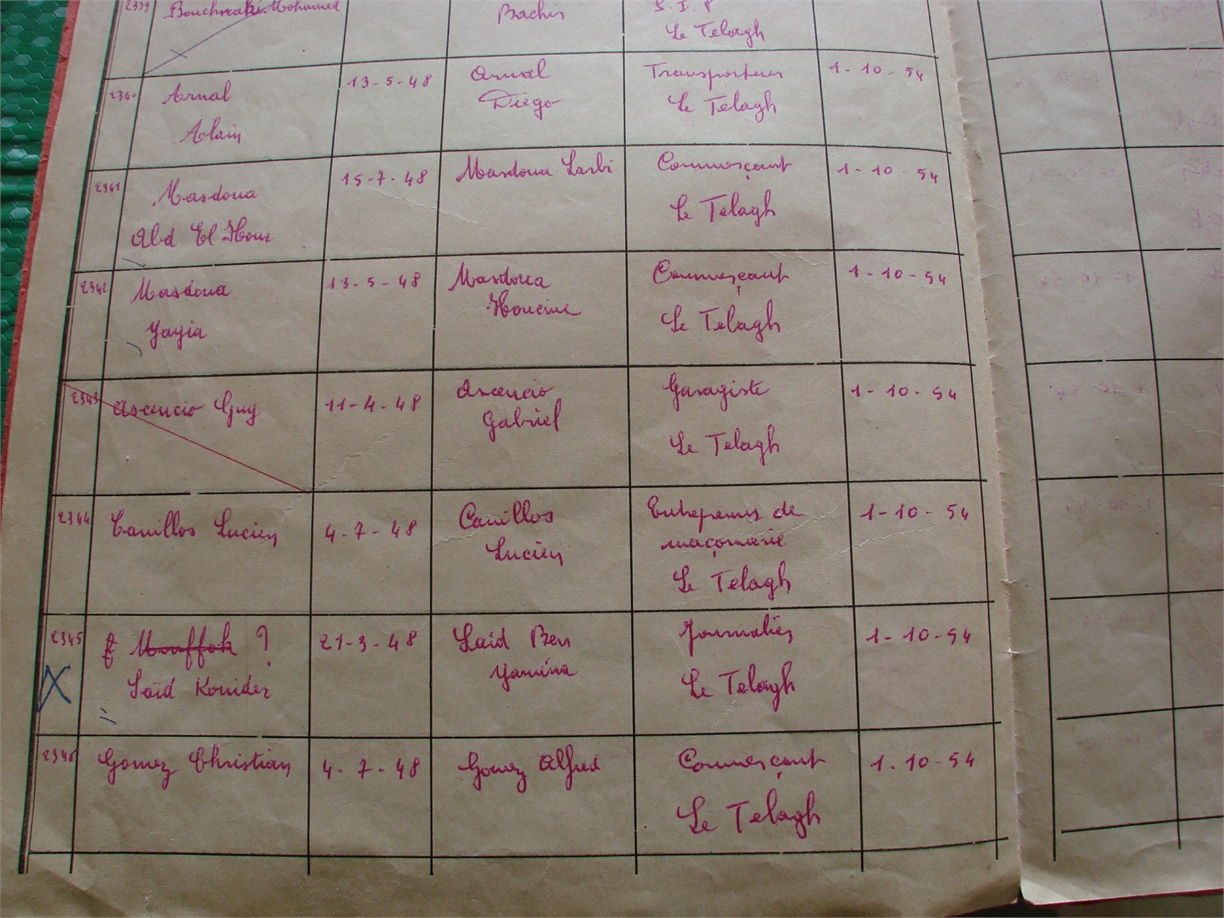 2339 Bouchnaki Mohamed Bachir S.I.P
Le Telagh
2340 Arnal 13-5-48 Arnal Transporteur 1-10-54
Alain Diego Le Telagh
2341 Masdoua 15-7-48 Masdoua Larbi Commerçant 1-10-54
Abd El Hour Le Telagh
2342 Masdoua 13-5-48 Masdoua Commerçant 1-10-54
Yayia Houcine Le Telagh
2343 Ascencio Guy 11-4-48 Ascencio Garagiste 1-10-54
Gabriel Le Telagh
2344 Canillos Lucien 4-7-48 Canillos Entrepreneur de 1-10-54
Lucien maçonnerie
Le Telagh
2345 Mouffok ? 21-3-48 Saïd Ben Journalier 1-10-54
Saïd Kouider Yamina Le Telagh
2346 Gomez Christian 4-7-48 Gomez Alfred Commerçant 1-10-54
Le Telagh